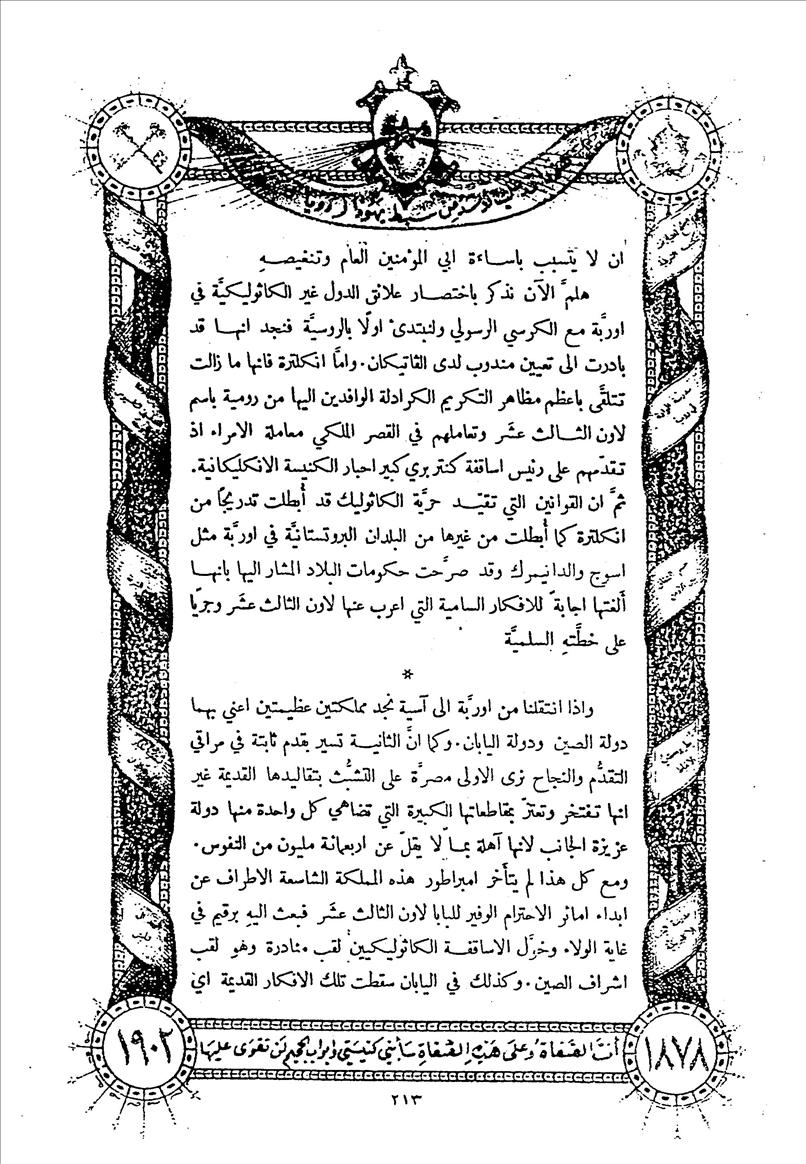 الاسد من سبط يهوذا
ان لا يتسبب باساءة ابي المؤمنين العام وتنغيصهِ
هلمَّ الآن نذكر باختصار علائق الدول غير الكاثوليكيَّة في
اوربَّة مع الكرسي الرسولي ولنبتدئ اولًا بالروسيَّة فنجد انها قد
بادرت الى تعيين مندوب لدى الڤاتيكان. واما انكلترة فانها ما زالت
تتلقَّى باعظم مظاهر التكريم الكرادلة الوافدين اليها من رومية باسم
لاون الثالث عشر وتعاملهم في القصر الملكي معاملة الامراء اذ
تقدّمهم على رئيس اساقفة كنتربري كبير احبار الكنيسة الانكليكانية.
ثمَّ ان القوانين التي تقيّد حريَّة الكاثوليك قد أُبطلت تدريجًا من
انكلترة كما أُبطلت من غيرها من البلدان البروتستانيَّة في اوربَّة مثل
اسوج والدانيمرك وقد صرَّحت حكومات البلاد المشار اليها بانها
ألغتها اجابةً للافكار السامية التي اعرب عنها لاون الثالث عشر وجريًا
على خطَّتهِ السلميَّة
*
واذا انتقلنا من اوربَّة الى آسية نجد مملكتين عظيمتين اعني بهما
دولة الصين ودولة اليابان. وكما انَّ الثانية تسير بقدم ثابتة في مراقي
التقدُّم والنجاح نرى الاولى مصرَّة على التشبُّث بتقاليدها القديمة غير
انها تفتخر وتعتزّ بمقاطعاتها الكبيرة التي تضاهي كل واحدة منها دولة
عزيزة الجانب لانها آهلة بما لا يقلّ عن اربعمائة مليون من النفوس.
ومع كل هذا لم يتأخر امبراطور هذه المملكة الشاسعة الاطراف عن
ابداء امائر الاحترام الوفير للبابا لاون الثالث عشر فبعث اليهِ برقيم في
غاية الولاء وخوَّل الاساقفة الكاثوليكيين لقب منادرة وهو لقب
اشراف الصين. وكذلك في اليابان سقطت تلك الافكار القديمة اي
١٨٧٨
أنت الصفاة وعلى هذه الصفاة سأبني كنيستي وابواب الجحيم لن تقوى عليها
١٩٠٢
٢١٣